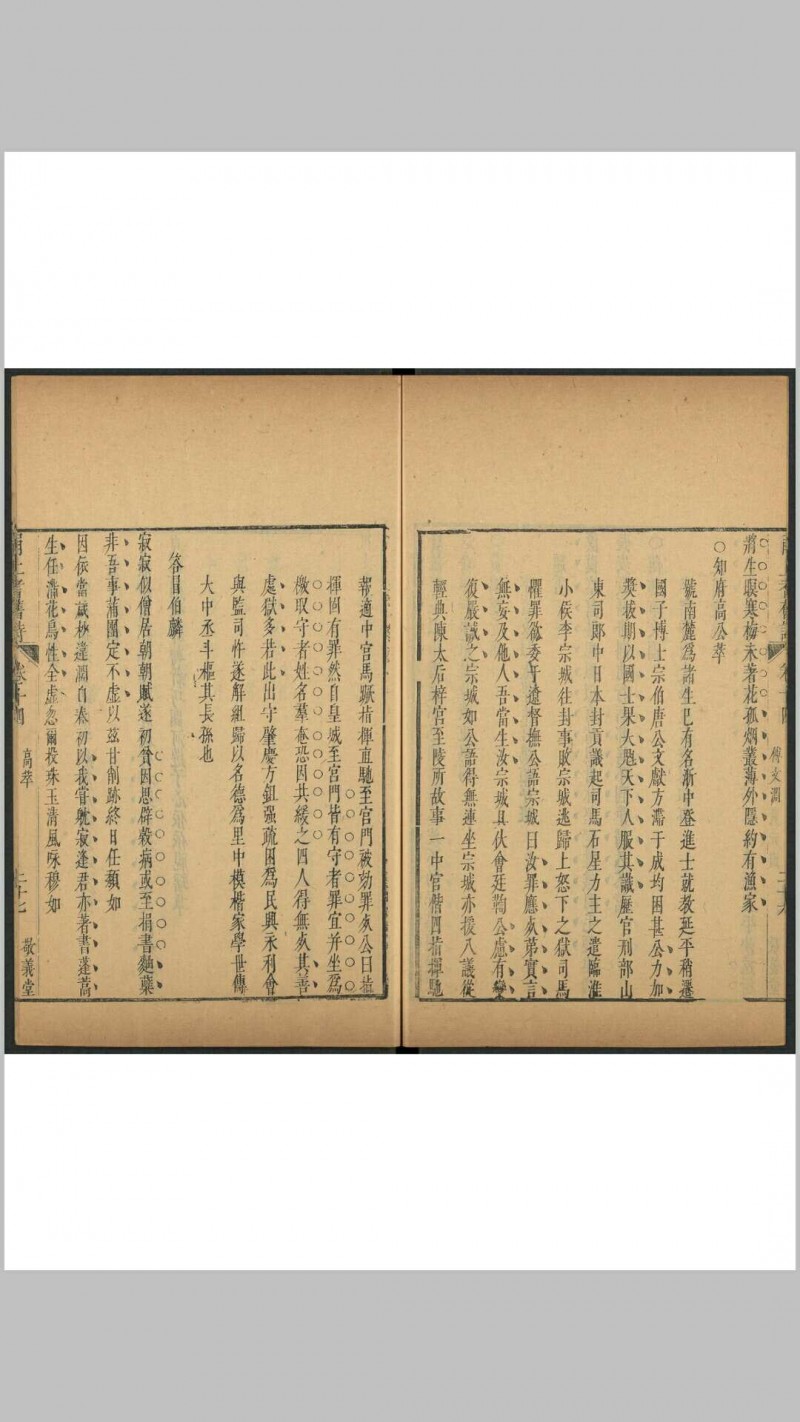 將生眼寒梅未著花孤烟叢薄外隱約有漁家
○知府高公萃
號南麓爲諸生巳有名浙中登進士就教延平稍遷
國子博士宗伯唐公文獻方滯于成均困甚公力加
奬拔期以國士果大魁天下人服其識歷官刑部山
東司郎中日本封貢議起司馬石星力主之遣臨淮
小侯李宗城往封事敗宗城逃歸上怒下之獄司馬
懼罪欲委于遼督撫公語宗城曰汝罪應死第實言
無妄及他人吾當生汝宗城具伏會廷鞫公慮有變
復嚴誡之宗城如公語得無連坐宗城亦援八議從
輕典陳太后梓宮至陵所故事一中官偕四指揮馳
報適中官馬蹶指揮直馳至宮門被劾罪死公曰指
揮固有罪然自皇城至宮門皆有守者罪宜并坐爲
檄取守者姓名羣奄恐因共緩之四人得無死其善
處獄多若此出守肇慶方鉏强疏困爲民興永利會
與監司忤遂解組歸以名德爲里中模楷家學世傳
大中丞斗樞其長孫也
答目伯麟
寂寂似僧居朝朝賦遂初貧因思辟榖病或至捐書麯蘖
非吾事蒲團定不虛以玆甘削跡終日任頽如
因依當歲極違濶自春初以我甞躭寂逢君亦著書蓬蒿
生任滿花鳥性全虛忽爾投珠玉清風咏穆如
高萃
二十七
敬義堂